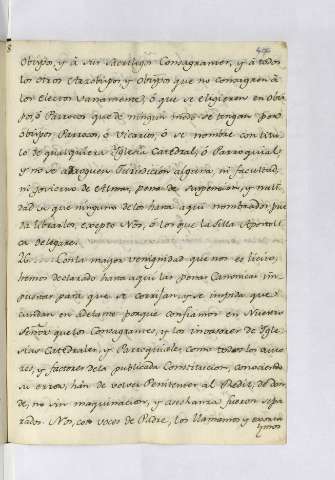 8
Obispos, y à sus Sacrilegos Consagrantes, y à todos
los otros Arzobispos, y Obispos que no consagren à
los Electos vanamente, ó que se eligieren en Obis-
pos, ó Parrocos que de ningun modo se tengan por
Obispos Parrocos, ó Vicarios, ó se nombre con titu-
lo de qualquiera Yglesia Catedral, ó Parroquial
y no se adroguen Jurisdicion alguna, ni facultad
ni govierno de Almas, pena de suspension, y nuli-
dad, la que ninguno de los hasta aqui nombrados pue-
da librarles, excepto Nos, ó los que la Silla Apostoli-
ca delegare.
Con la mayor venignidad que nos es licito,
hemos declarado hasta aqui las penas Canonicas im-
puestas para que se corrijan, y se impida que
cundan en adelante porque confiamos en Nuestro
Señor que los Consagrantes, y los invasores de Ygle-
sias Catedrales, y Parroquiales, como todos los auto-
res, y factores de la publicada Constitucion, conociendo
su error, han de volver Penitentes al Redil, de don-
de, no sin maquinacion, y asechanza fueron sepa-
rados. Nos, con voces de Padre, los llamamos y exorta-
mos